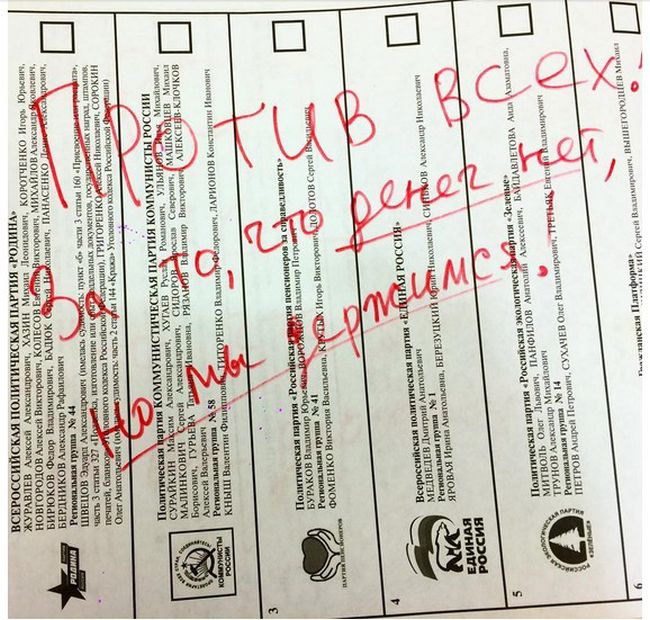 Против всех!
За то, что денег нет,
Но мы держимся.
ВСЕРОССИЙСКАЯ ПОЛИТИЧЕСКАЯ ПАРТИЯ «РОДИНА»
ЖУРАВЛЕВ Алексей Александрович, ХАЗИН Михаил Леонидович, КОРОТЧЕНКО Игорь Юрьевич,
НОВГОРОДОВ Алексей Викторович, КОЛЕСОВ Евгений Викторович, МИХАЙЛОВ Александр Яковлевич,
БИРЮКОВ Федор Владимирович, БАДЮК Сергей Николаевич, ПАНАСЕНКО Денис Александрович,
БЕРДНИКОВ Александр Рафаилович
Региональная группа № 44
ШВЕЦОВ Эдуард Александрович (имелась судимость: пункт «б» части 3 статьи 160 «Присвоение или растрата»,
часть 3 статьи 327 «Подделка, изготовление или сбыт поддельных документов, государственных наград, штампов,
печатей, бланков» Уголовного кодекса Российской Федерации), ГРИГОРЕНКО Алексей Николаевич, СОРОКИН
Олег Анатольевич (имелась судимость: часть 2 статьи 144 «Кража» Уголовного кодекса Российской Федерации)
РОДИНА
Политическая партия КОММУНИСТИЧЕСКАЯ ПАРТИЯ КОММУНИСТЫ РОССИИ
СУРАЙКИН Максим Александрович, ХУГАЕВ Руслан Романович, УЛЬЯНОВ Михайлович,
МАЛИНКОВИЧ Сергей Александрович, СИДОРОВ Ярослав Северович, МАШКОВЦЕВ Михаил
Борисович, ГУРЬЕВА Татьяна Ивановна, РЯЗАНОВ Владимир Викторович, АЛЕКСЕЕВ-КЛОЧКОВ
Алексей Валерьевич
Региональная группа № 58
КНЫШ Валентин Филиппович, ТИТОРЕНКО Владимир Федорович, ЛАРИОНОВ Константин Иванович
КОММУНИСТЫ
РОССИИ
3
Политическая партия «Российская партия пенсионеров за справедливость»
БУРАКОВ Владимир Юрьевич, ВОРОЖЦОВ Владимир Петрович, ЗОЛОТОВ Сергей Васильевич
Региональная группа № 41
ФОМЕНКО Виктория Васильевна, КРУТЫХ Игорь Викторович
ПАРТИЯ ПЕНСИОНЕРОВ
4
Всероссийская политическая партия «ЕДИНАЯ РОССИЯ»
МЕДВЕДЕВ Дмитрий Анатольевич
Региональная группа № 1
ЯРОВАЯ Ирина Анатольевна, БЕРЕЗУЦКИЙ Юрий Николаевич, СИНЬКОВ Александр Николаевич
ЕДИНАЯ
РОССИЯ
5
Политическая партия «Российская экологическая партия «Зеленые»
МИТВОЛЬ Олег Львович, ПАНФИЛОВ Анатолий Алексеевич, БАЙДАВЛЕТОВА Аида Ахаматовна,
ТРУНОВ Александр Михайлович
Региональная группа № 14
ПЕТРОВ Андрей Петрович, СУХАЧЕВ Олег Владимирович, ТРЕТЬЯК Евгений Владимирович
РОССИЙСКАЯ ЭКОЛОГИЧЕСКАЯ ПАРТИЯ
«ЗЕЛЁНЫЕ»
6
Гражданская Платформа»
Сергей Владимирович, ВЫШЕГОРОДЦЕВ Михаил